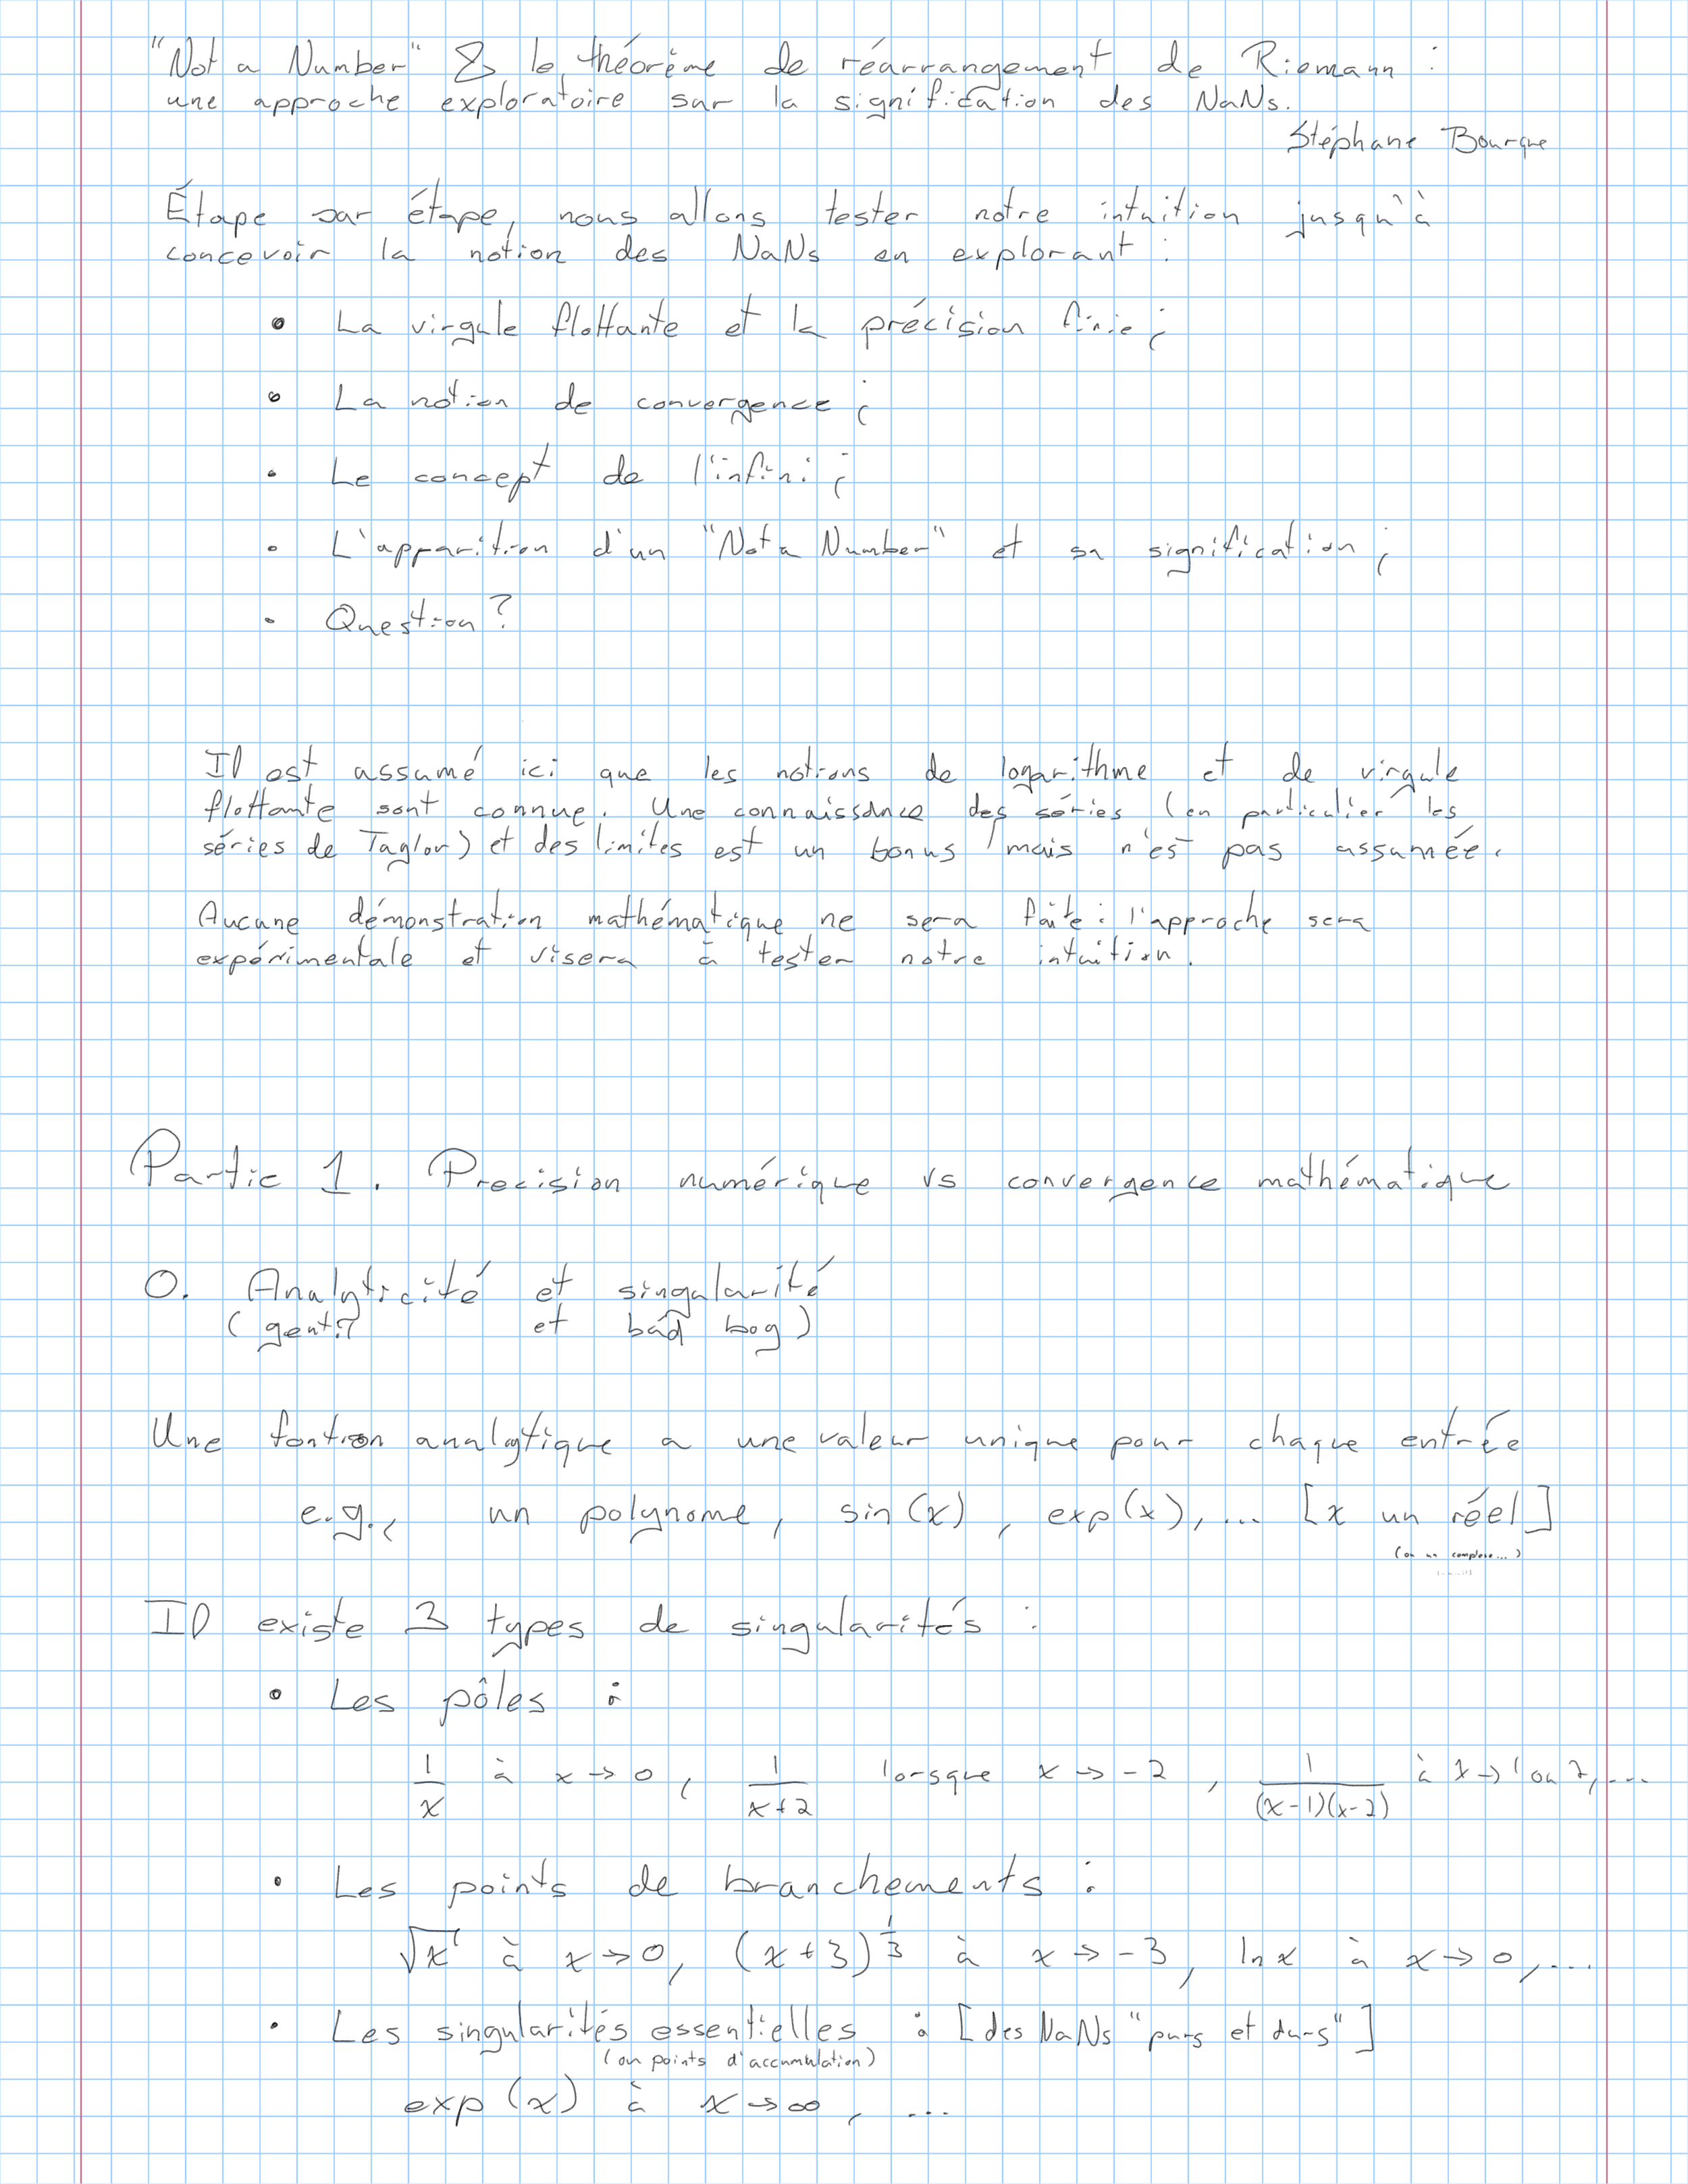 "Not a Number" & le théorème de réarrangement de Riemann :
une approche exploratoire sur la signification des NaNs.
Stéphane Bourque
Étape par étape, nous allons tester notre intuition jusqu'à
concevoir la notion des NaNs en explorant :
• La virgule flottante et la précision finie ;
• La notion de convergence ;
• Le concept de l'infini ;
• L'apparition d'un "Not a Number" et sa signification ;
• Question ?
Il est assumé ici que les notions de logarithme et de virgule
flottante sont connue. Une connaissance des séries (en particulier les
séries de Taylor) et des limites est un bonus mais n'est pas assumée.
Aucune démonstration mathématique ne sera faite : l'approche sera
expérimentale et visera à tester notre intuition.
Partie 1. Precision numérique vs convergence mathématique
0. Analyticité et singularité
(gentil et bad boy)
Une fontion analytique a une valeur unique pour chaque entrée
e.g., un polynome, sin(x), exp(x), ... [x un réel]
(ou un complexe...)
Il existe 3 types de singularités :
• Les pôles :
1/x à x→0, 1/(x+2) lorsque x→-2, 1/((x-1)(x-2)) à x→1 ou 2, ...
• Les points de branchements :
√x à x→0, (x+3)^(1/3) à x→-3, ln x à x→0, ...
• Les singularités essentielles : [des NaNs "purs et durs"]
(ou points d'accumulation)
exp(x) à x→∞, ...